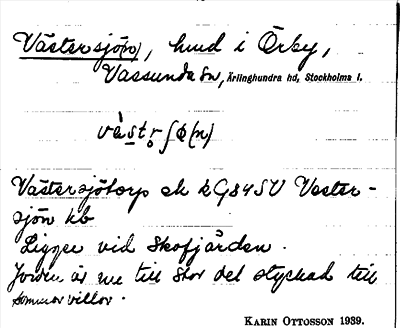 Västersjö(n), hmd i Örby,
Vassunda sn, Ärlinghundra hd, Stockholms l.
Västersjötorp ek kG84SV Vester-
sjön kb
Ligger vid Skofjärden.
Jorden är nu till stor del styckad till
sommarvillor.
KARIN OTTOSSON 1939.